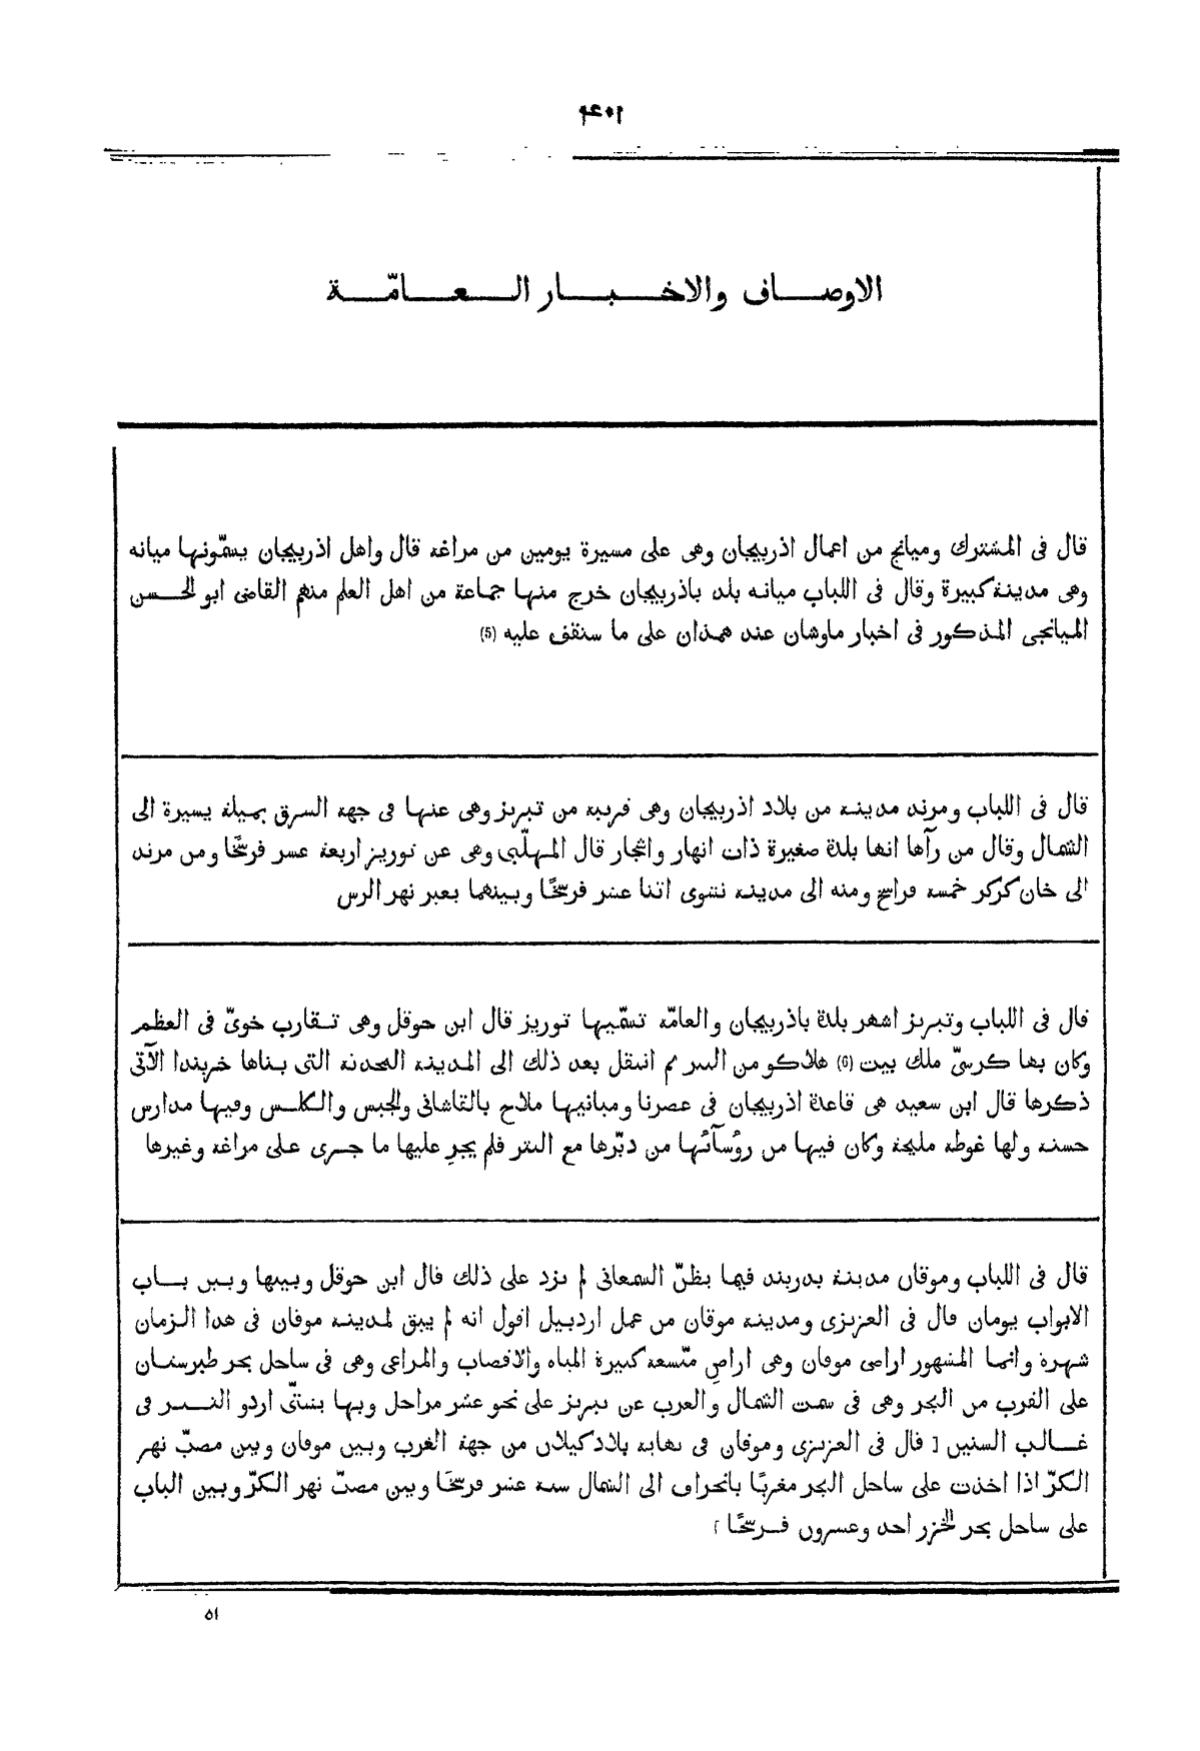 ۴۰۱
الاوصاف والاخبار العامّة
قال فى المشترك وميانج من اعمال اذربيجان وهى على مسيرة يومين من مراغه قال واهل اذربيجان يسمّونها ميانه
وهى مدينة كبيرة وقال فى اللباب ميانه بلد باذربيجان خرج منها جماعة من اهل العلم منهم القاضى ابو الحسن
الميانجى المذكور فى اخبار ماوشان عند همدان على ما ستقف عليه (5)
قال فى اللباب ومرند مدينة من بلاد اذربيجان وهى قريبة من تبريز وهى عنها فى جهة الشرق بميلة يسيرة الى
الشمال وقال من رآها انها بلدة صغيرة ذات انهار واشجار قال المهلّبى وهى عن توريز اربعة عشر فرسخًا ومن مرند
الى خان كركر خمسة فراسخ ومنه الى مدينة نشوى اثنا عشر فرسخًا وبينهما يعبر نهر الرس
قال فى اللباب وتبريز اشهر بلدة باذربيجان والعامّة تسمّيها توريز قال ابن حوقل وهى تقارب خوىّ فى العظم
وكان بها كرسىّ ملك بيت (6) هلاكو من التتر ثم انتقل بعد ذلك الى المدينة المحدثة التى بناها خربندا الآتى
ذكرها قال ابن سعيد هى قاعدة اذربيجان فى عصرنا ومبانيها ملاح بالقاشانى والجبس والكلس وفيها مدارس
حسنة ولها غوطة مليحة وكان فيها من رؤسآئها من دبّرها مع التتر فلم يجرِ عليها ما جرى على مراغه وغيرها
قال فى اللباب وموقان مدينة بدربند فيما يظنّ السمعانى لم يزد على ذلك قال ابن حوقل وبينها وبين باب
الابواب يومان قال فى العزيزى ومدينة موقان من عمل اردبيل اقول انه لم يبق لمدينة موقان فى هذا الزمان
شهرة وانما المشهور اراضى موقان وهى اراضٍ متّسعة كبيرة المياه والاقصاب والمراعى وهى فى ساحل بحر طبرستان
على القرب من البحر وهى فى سمت الشمال والغرب عن تبريز على نحو عشر مراحل وبها يشتّى اردو التتر فى
غالب السنين [ قال فى العزيزى وموقان فى نهاية بلاد كيلان من جهة الغرب وبين موقان وبين مصبّ نهر
الكرّ اذا اخذت على ساحل البحر مغربًا بانحراف الى الشمال ستة عشر فرسخًا وبين مصبّ نهر الكرّ وبين الباب
على ساحل بحر الخزر احد وعشرون فرسخًا ]
٥١